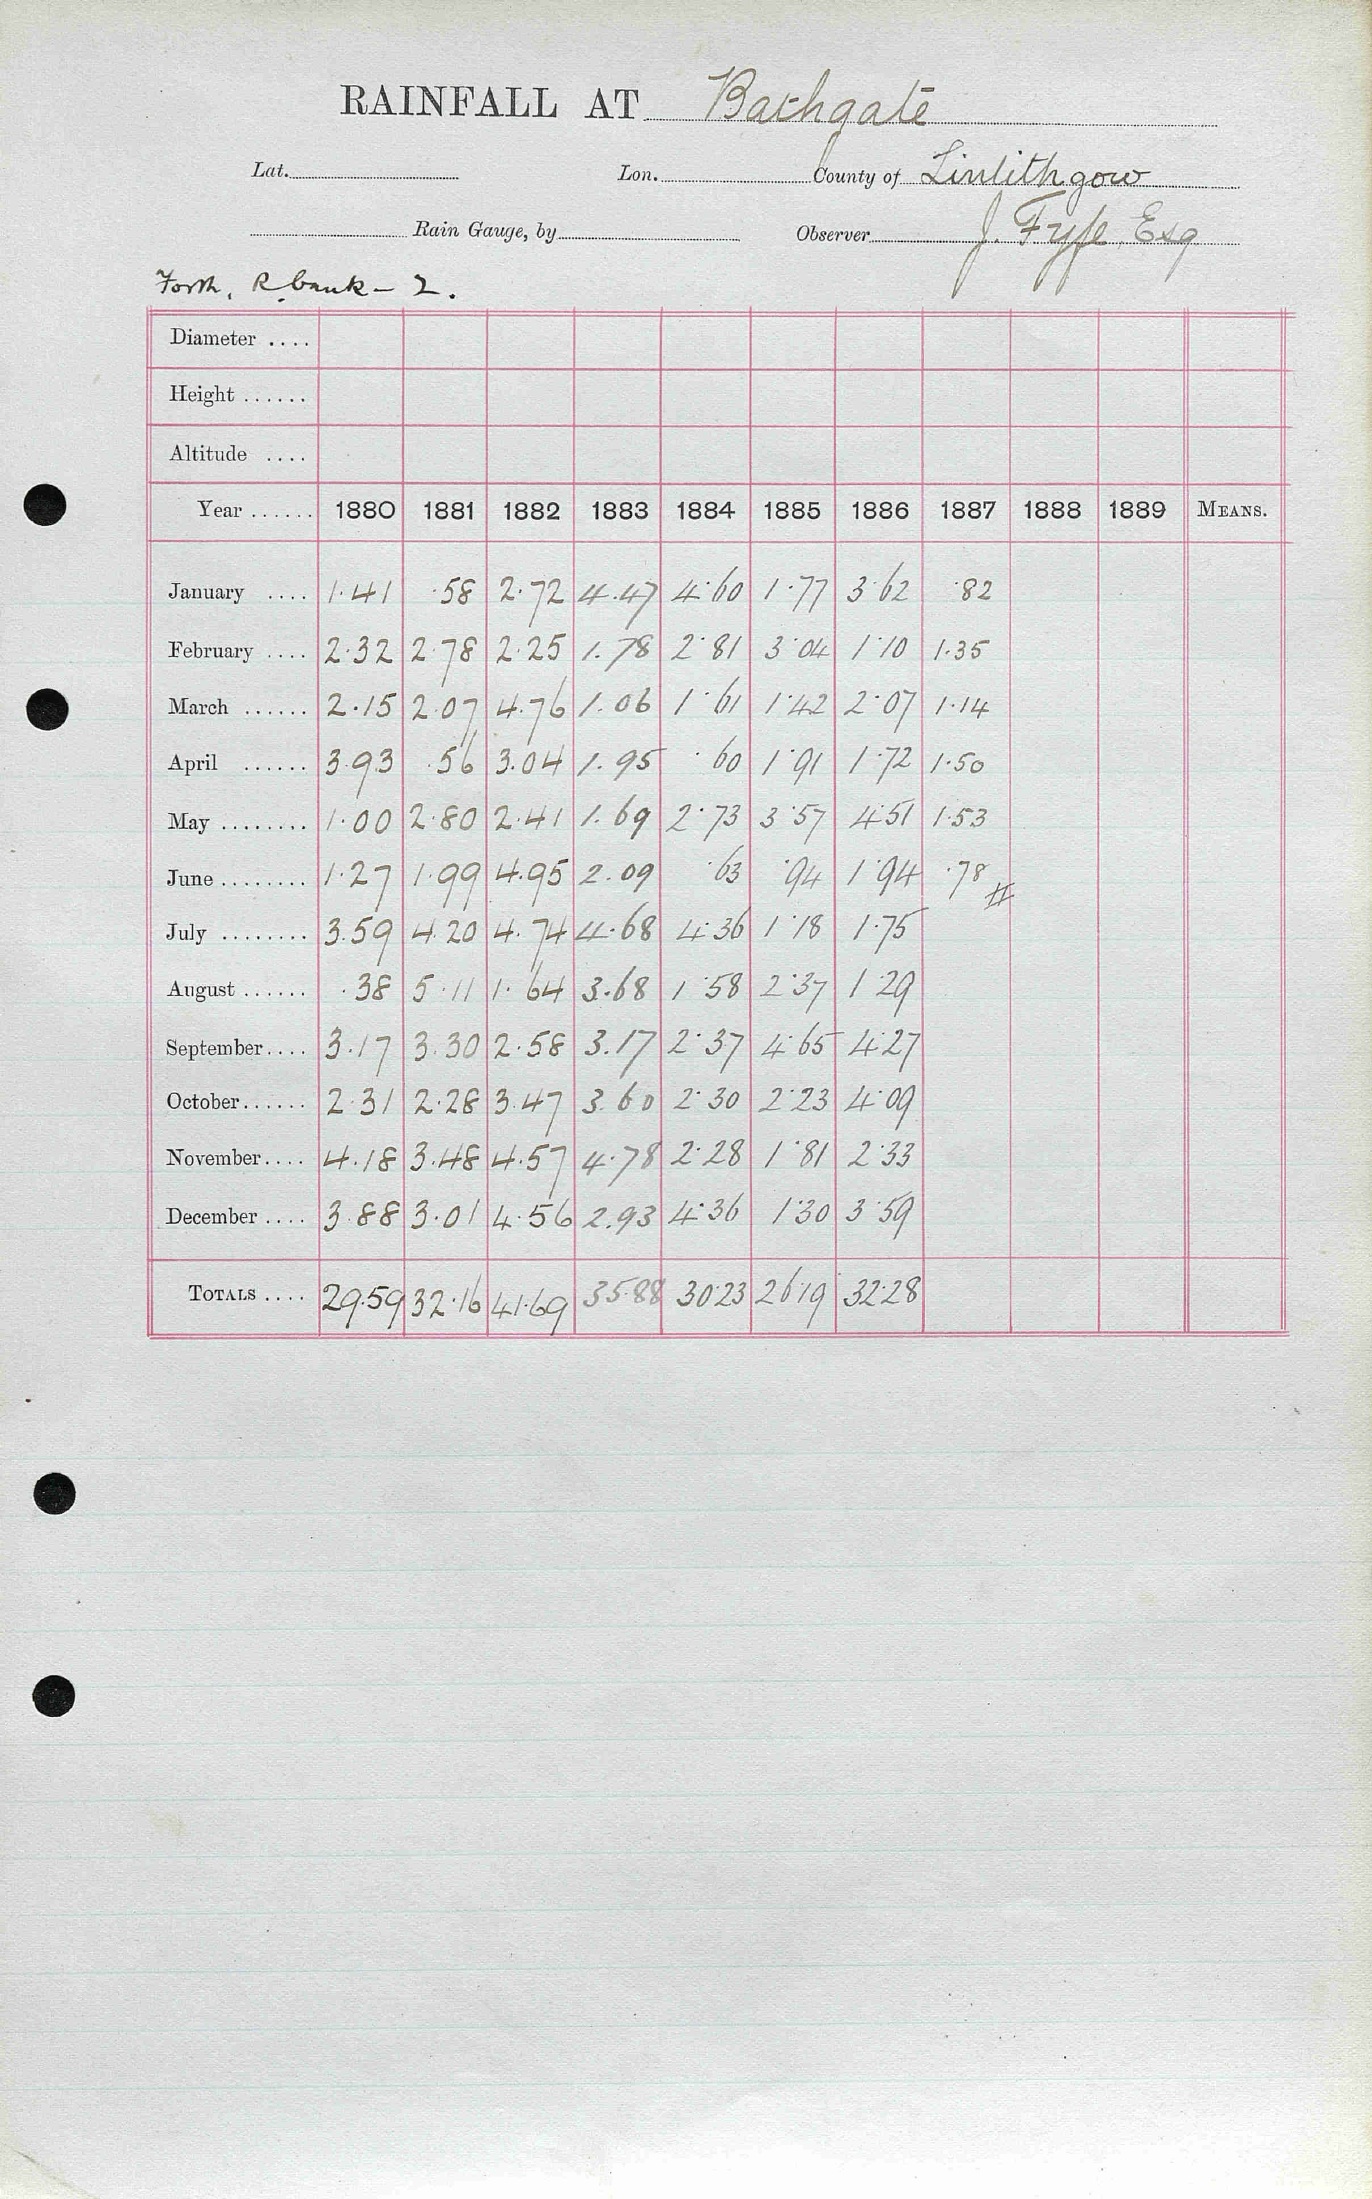 RAINFALL AT Bathgate
Lat. Lon. County of Linlithgow
Rain Gauge, by Observer J. Fyfe, Esq
Forth, R. bank – 2.
Diameter ....
Height ......
Altitude ....
Year ...... 1880 1881 1882 1883 1884 1885 1886 1887 1888 1889 MEANS.
January .... 1.41 .58 2.72 4.47 4.60 1.77 3.62 .82
February .... 2.32 2.78 2.25 1.78 2.81 3.04 1.10 1.35
March ...... 2.15 2.07 4.76 1.06 1.61 1.42 2.07 1.14
April ...... 3.93 .56 3.04 1.95 .60 1.91 1.72 1.50
May ........ 1.00 2.80 2.41 1.69 2.73 3.57 4.51 1.53
June ........ 1.27 1.99 4.95 2.09 .63 .94 1.94 .78 #
July ........ 3.59 4.20 4.74 4.68 4.36 1.18 1.75
August ...... .38 5.11 1.64 3.68 1.58 2.37 1.29
September.... 3.17 3.30 2.58 3.17 2.37 4.65 4.27
October...... 2.31 2.28 3.47 3.60 2.30 2.23 4.09
November.... 4.18 3.48 4.57 4.78 2.28 1.81 2.33
December .... 3.88 3.01 4.56 2.93 4.36 1.30 3.59
TOTALS .... 29.59 32.16 41.69 35.88 30.23 26.19 32.28